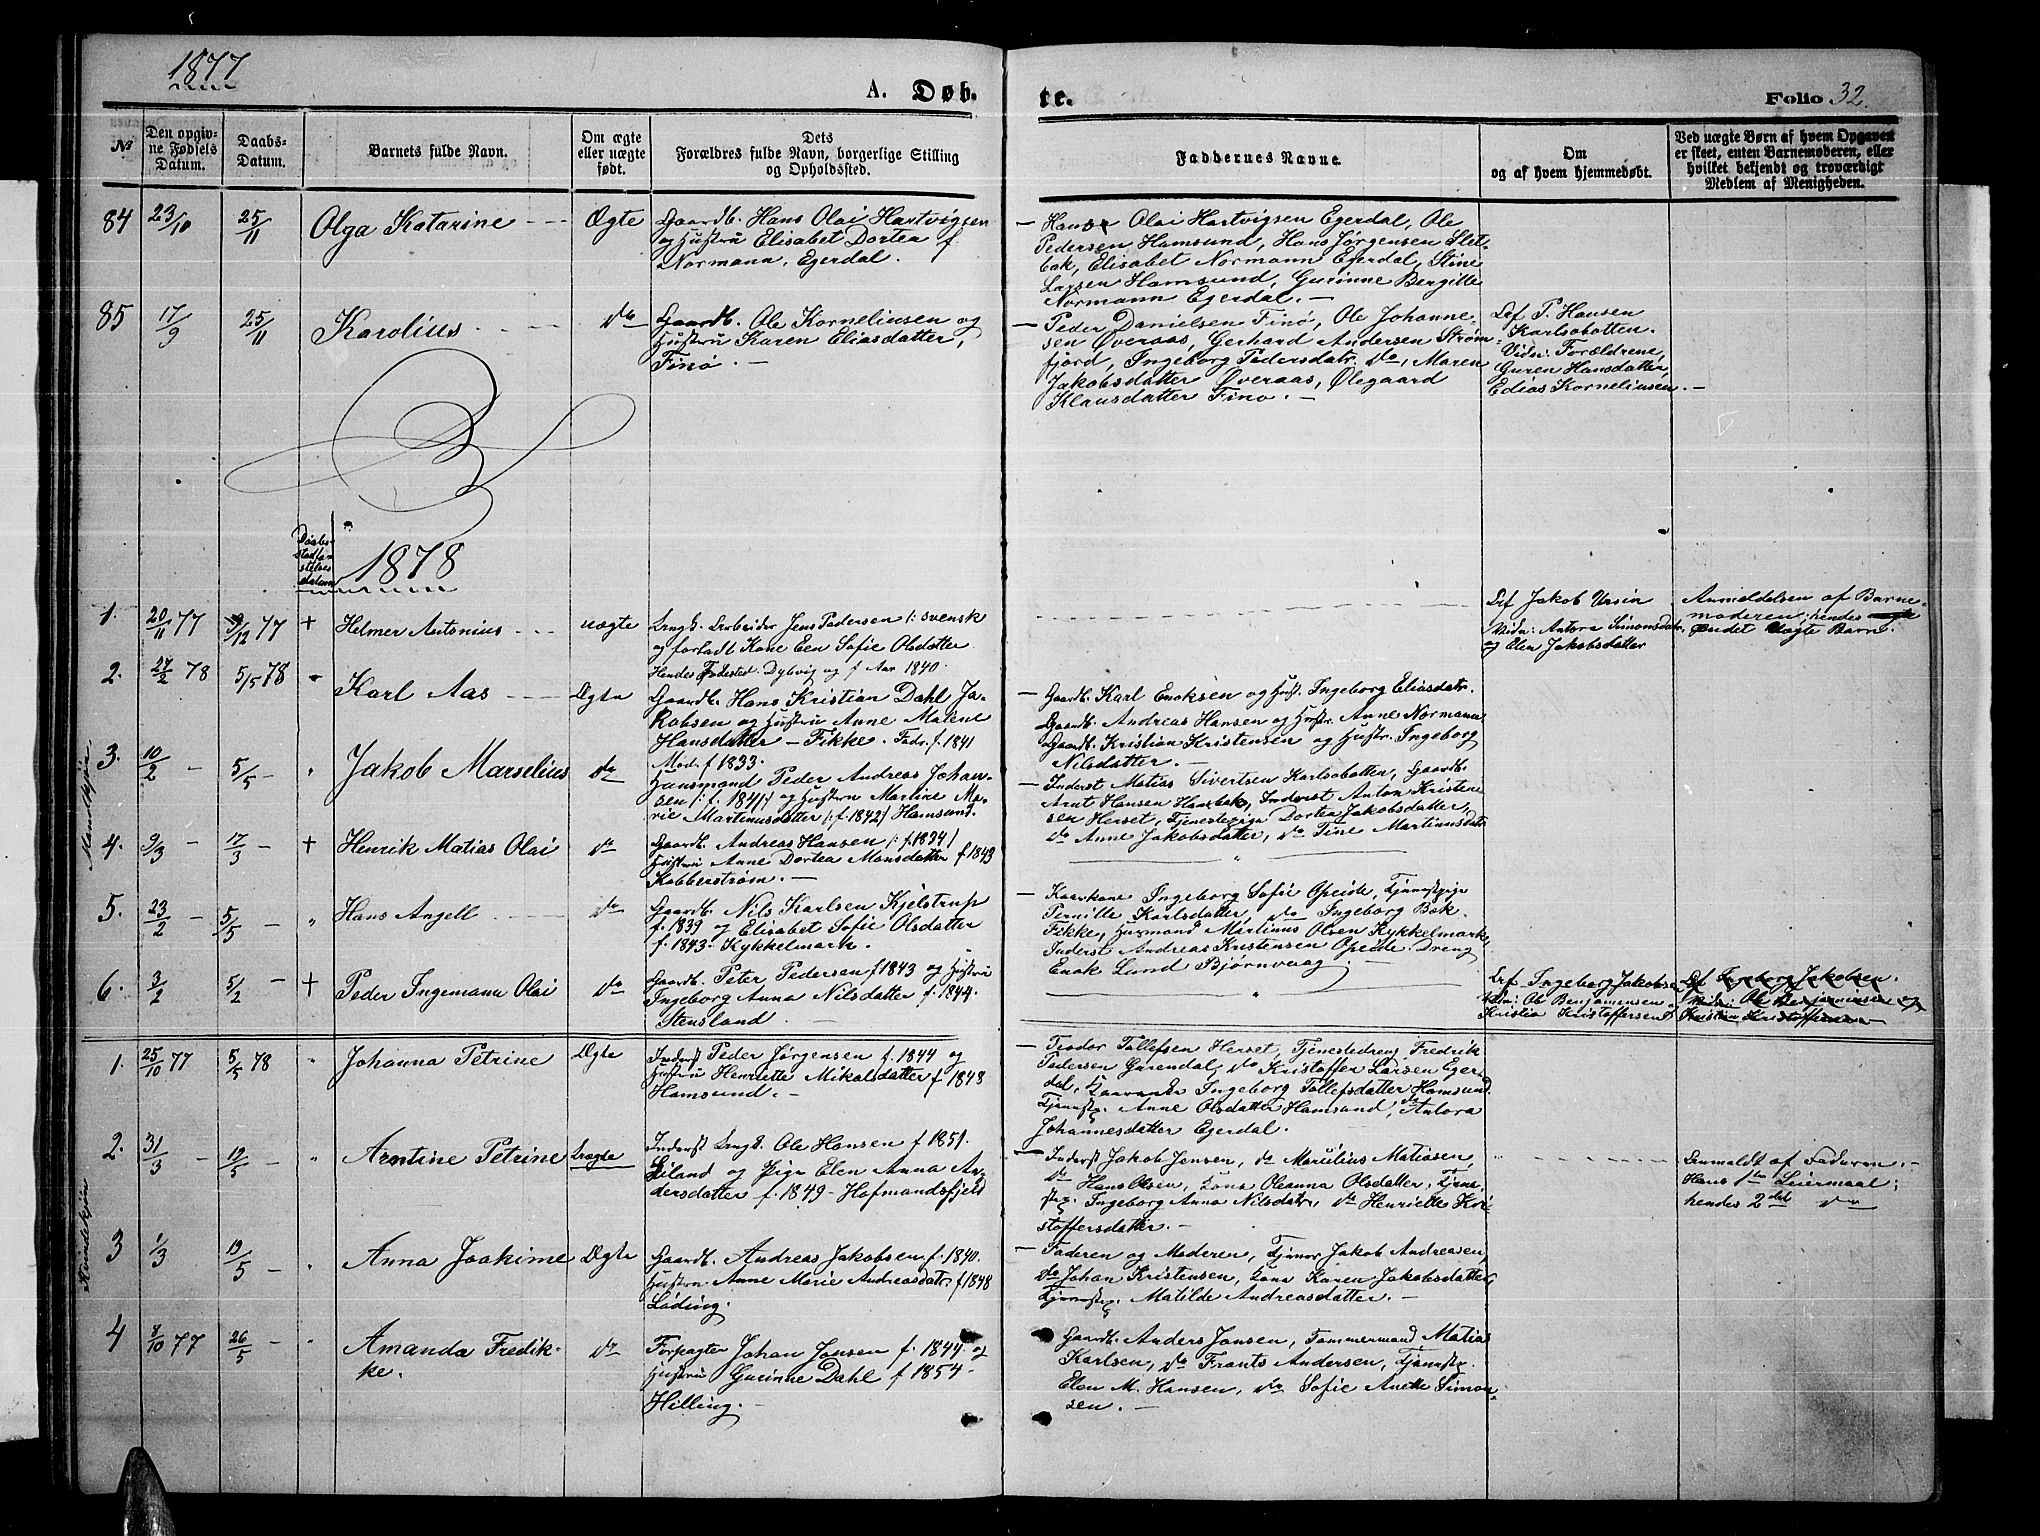 1877
A. Døb-
te.
Folio 32.
No
Den opgiv-
ne Fødsels
Datum.
Daabs-
Datum.
Barnets fulde Navn.
Om ægte
eller uægte
født.
Dets
Forældres fulde Navn, borgerlige Stilling
og Opholdssted.
Faddernes Navne.
Om
og af hvem hjemmedøbt.
Ved uægte Børn af hvem Opgaven
er skeet, enten Barnemoderen, eller
hvilket bekjendt og troværdigt
Medlem af Menigheden.
84 23/10 25/11 Olga Katarine Ægte
Gaardb. Hans Olai Hartvigsen
og Hustru Elisabet Dortea f.
Normann, Egerdal.
Hans Olai Hartvigsen Egerdal, Ole
Pedersen Hamsund, Hans Jørgensen Slet-
bak, Elisabet Normann Egerdal, Stine
Larsen Hamsund, Gurinne Bergitte
Normann Egerdal.
85 17/9 25/11 Karolius do
Gaardb. Ole Korneliusen og
Hustru Karen Eliasdatter,
Finø.
Peder Danielsen Finø, Ole Johanne-
sen Øveraas, Gerhard Andersen Strøm-
fjord, Ingeborg Pedersdatr. do, Maren
Jakobsdatter Øveraas, Olegaard
Klausdatter Finø.
Def P. Hansen
Karlsobotten.
Vidn: Forældrene,
Guren Hansdatter,
Edias Korneliusen.
Daabs-
stadfæ-
stelses
datum
1878
Mandkjøn
1. 20/11 77 9/12 77 + Helmer Antonius uægte
Ungk. Arbeider Jens Pedersen /: svensk
og forladt Kone Een Sofie Olsdatter
Hendes Fødested Dybvig og f. Aar 1840.
Def Jakob Ursin
Vidn: Antora Simonsdatr.
og Elen Jakobsdatter
Anmeldelsen af Barne-
moderen; hendes
Barn.
2. 27/2 78 5/5 78 " Karl Aas Ægte
Gaardb. Hans Kristian Dahl Ja-
kobsen og Hustru Anne Malene
Hansdatter – Fikke. Fadr. f. 1841
Mod. f 1833.
Gaardb. Karl Enoksen og Hust. Ingeborg Eliasdatr.
Gaardb. Andreas Hansen og Hustr. Anne Normann
Gaardb. Kristian Kristensen og Hustr. Ingeborg
Nilsdatter.
3. 10/2 - 5/5 - " Jakob Marselius do
Husmand Peder Andreas Johan-
sen /: f. 1841 :/ og Hustru Martine Ma-
rie Martinusdatter /: f. 1842 / Hamsund.
Inderst Matias Sivertsen Karlsobotten, Gaardb.
Arnt Hansen Haabak, Inderst Anton Kristen-
sen Herset, Tjenestepige Dortea Jakobsdatter,
do Anne Jakobsdatter, do Tine Martinusdatr
4. 9/3 - 17/3 - + Henrik Matias Olai do
Gaardb. Andreas Hansen /: f. 1834 /
Hustru Anne Dortea Monsdatter f 1843
Kobberstrøm.
5. 23/2 - 5/5 - " Hans Angell do
Gaardb. Nils Karlsen Kjelstrup
f. 1839 og Elisabet Sofie Olsdatter
f. 1843. Kykkelmark.
Kaarkone Ingeborg Sofie Opeide, Tjenestpige
Pernille Karlsdatter, do Ingeborg Bok.
Fikke, Husmand Martinus Olsen Kykkelmark,
Inderst Andreas Kristensen Opeide. Dreng
Enok Lund Bjørnvaag.
6. 3/2 5/2 - + Peder Ingemann Olai do
Gaardb. Peter Pedersen f 1843 og Hustru
Ingeborg Anna Nilsdatter f. 1844.
Stensland.
Def Ingeborg Jakobsen
Vidn: Ole Benjaminsen og
Kristia Kristoffersen
Def Ingeborg Jakobsen.
Vidn: Ole Benjaminsen og
Kristian Kristoffersen
Kvindekjøn
1. 25/10 77 5/5 78 " Johanna Petrine Ægte
Inderst Peder Jørgensen f. 1844 og
Hustru Henriette Mikalsdatter f 1848
Hamsund.
Teodor Tollefsen Herset, Tjenestedreng Fredrik
Pedersen Gurendal, do Kristoffer Larsen Eger-
dal, Ingeborg Tollefsdatter Hamsund.
Tjenestp. Anne Olsdatter Hamsund, do Antora
Johannesdatter Egerdal.
2. 31/3 - 19/5 - " Arntine Petrine Uægte
Inderst Ungk. Ole Hansen f 1851.
Eiland og Pige Elen Anna An-
dersdatter f. 1849 – Hofmandsfjeld
Inderst Jakob Jensen, do Marselius Matiasen,
do Hans Olsen, Kona Oleanna Olsdatter, Tjene-
stp. Ingeborg Anna Nilsdatr. do Henriette Kri-
stoffersdatter.
Anmeldt af Faderen.
Hans 1ste Leiermaal;
hendes 2det do
3 1/3 19/5 - " Anna Joakime Ægte
Gaardb. Andreas Jakobsen f. 1840.
Hustru Anne Marie Andreasdatr. f 1848
Løding.
Faderen og Moderen, Tjener Jakob Andreasen,
do Johan Kristensen, Kona Karen Jakobsdatter,
Tjenestp. Matilde Andreasdatter.
4 8/10 77 26/5 - " Amanda Fredik-
ke. do
Forpagter Johan Jensen f. 1844 og
Hustru Gurinne Dahl f 1854
Hilling.
Gaardb. Anders Jensen, Tømmermand Matias
Karlsen, do Frants Andersen, Tjenestp.
Elen M. Hansen, do Sofie Anette Simon-
sen.